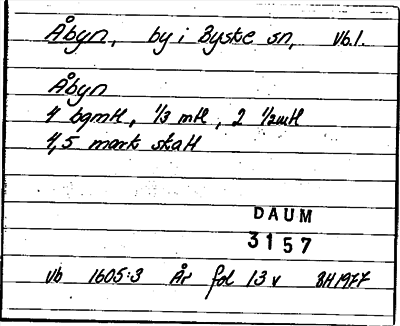 Åbyn, by i Byske sn, Vb.l.
Åbyn
4 bgmtl, 1/3 mtl, 2 1/2mtl
4,5 mark skatt
DAUM
3157
Vb 1605:3 Är fol 13 v BH 1977